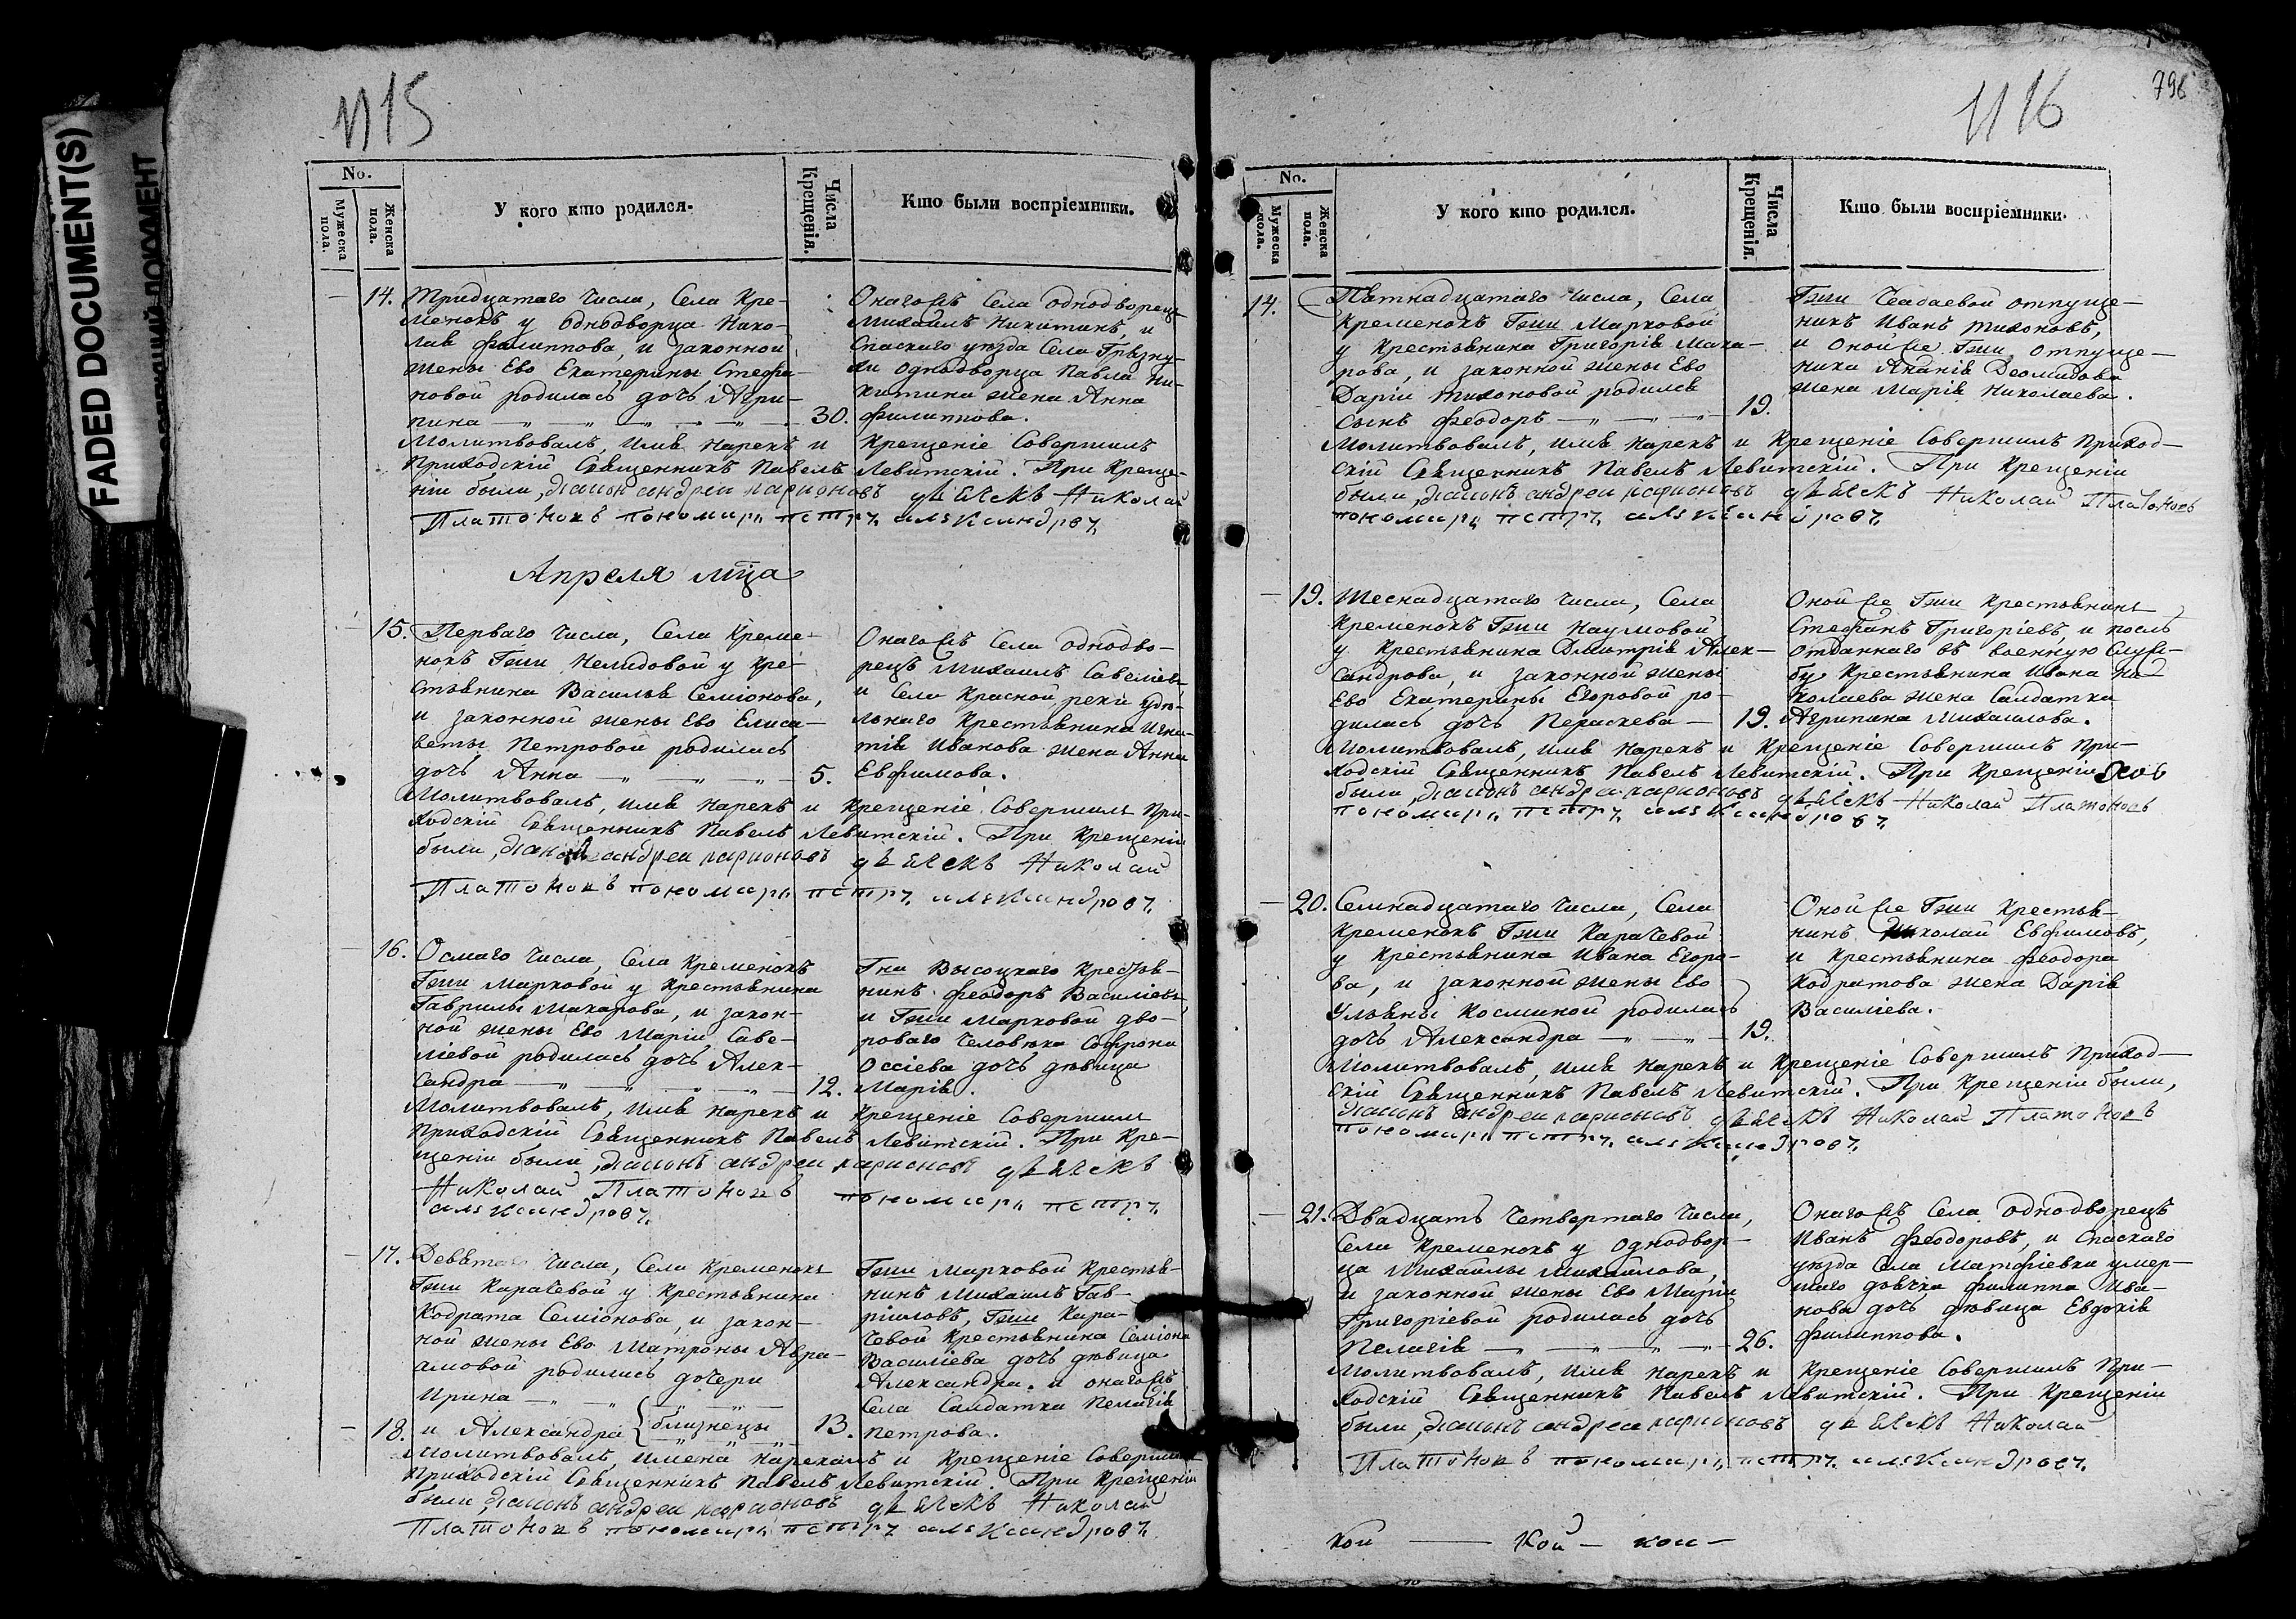 FADED DOCUMENT(S)
ДОКУМЕНТ
1115
No.
Мужеска пола.
Женска пола.
У кого кто родился.
Числа Крещенія.
Кто были воспріемники.
14. Тридцатаго числа, Села Кре-
менокъ у однодворца Нико-
лая Филиппова, и законной
жены Ево Екатерины Стефа-
новой родилась дочь Агри-
пина 30.
Онагожъ Села однодворецъ
Михаилъ Никитинъ, и
Спаскаго уезда Села Грязну-
хи однодворца Павла Ни-
китина жена Анна
Филиппова.
Молитвовалъ, имя нарекъ и Крещеніе Совершилъ
Приходскій Священникъ Павелъ Левитскій. При Креще-
ніи были, діаконъ андреи ларионовъ дьячекъ Николай
Платоновъ пономарь петръ александровъ
Апреля мца
15. Перваго числа, Села Креме-
нокъ Гжи Нелидовой у Кре-
стьянина Василья Семіонова,
и законной жены Ево Елиса-
веты Петровой родилась
дочь Анна 5.
Онагожъ Села однодво-
рецъ Михаилъ Савеліевъ
и Села Красной реки удѣ-
льнаго Крестьянина Игна-
тія Иванова жена Анна
Евфимова.
Молитвовалъ, имя нарекъ и Крещеніе Совершилъ При-
ходскій Священникъ Павелъ Левитскій. При Крещеніи
были, андреи ларионовъ дьячекъ Николай
Платоновъ пономарь петръ александровъ
16. Осмаго числа, Села Кременокъ
Гжи Марковой у Крестьянина
Гаврилы Макарова, и закон-
ной жены Ево Маріи Саве-
ліевой родилась дочь Алек-
сандра 12.
Гна Высоцкаго Крестья-
нинъ Феодоръ Василіевъ,
и Гжи Марковой дво-
роваго человѣка Софрона
Оссіева дочь дѣвица
Марія.
Молитвовалъ, имя нарекъ и Крещеніе Совершилъ
Приходскій Священникъ Павелъ Левитскій. При Кре-
щеніи были, діаконъ андреи ларионовъ дьячекъ
Николай Платоновъ пономарь петръ
александровъ
17. Числа, Села Кременокъ
Гжи Карачевой у Крестьянина
Кодрата Семіонова, и закон-
ной жены Ево Матроны Авра-
амовой родились дочери
Ирина
18. и Александра близнецы 13.
Гжи Марковой Крестья-
нинъ Михаилъ Гав-
ріиловъ, Гжи Кара-
чевой Крестьянина Семіона
Василіева дочь дѣвица
Александра. и онагожъ
Села Салдатка Пелагія
Петрова.
Молитвовалъ, имена нарекалъ и Крещеніе Совершилъ
Приходскій Священникъ Павелъ Левитскій. При Крещеніи
были, діаконъ андреи ларионовъ дьячекъ Николай
Платоновъ пономарь петръ александровъ
1116
796
No.
Мужеска пола.
Женска пола.
У кого кто родился.
Числа Крещенія.
Кто были воспріемники.
14. Пятнадцатаго числа, Села
Кременокъ Гжи Марковой
у Крестьянина Григорія Мака-
рова, и законной жены Ево
Даріи Тихоновой родился
Сынъ Феодоръ 19.
Гжи Чеадаевой отпуще-
никъ Иванъ Тихоновъ,
и Оной же Гжи отпуще-
ника Ананія Деомидова
жена Марія Николаева.
Молитвовалъ, имя нарекъ и Крещеніе Совершилъ Приход-
скій Священникъ Павелъ Левитскій. При Крещеніи
были, діаконъ андреи ларионовъ дьячекъ Николай Платоновъ
пономарь петръ александровъ
19. Шеснадцатаго числа, Села
Кременокъ Гжи Наумовой
у Крестьянина Дмитрія Алек-
сандрова, и законной жены
Ево Екатерины Егоровой ро-
дилась дочь Параскева 19.
Оной же Гжи Крестьянинъ
Стефанъ Григоріевъ, и послѣ
отданнаго въ военную служ-
бу Крестьянина Ивана Ни-
колаева жена Салдатка
Агрипина Михаилова.
Молитвовалъ, имя нарекъ и Крещеніе Совершилъ При-
ходскій Священникъ Павелъ Левитскій. При Крещеніи
были, діаконъ андреи ларионовъ дьячекъ Николай Платоновъ
пономарь петръ александровъ
20. Семнадцатаго числа, Села
Кременокъ Гжи Карачевой
у Крестьянина Ивана Егоро-
ва, и законной жены Ево
Ульяны Косминой родилась
дочь Александра 19.
Оной же Гжи Крестья-
нинъ Николай Евфимовъ,
и Крестьянина Феодора
Кодратова жена Дарія
Василіева.
Молитвовалъ, имя нарекъ и Крещеніе Совершилъ Приход-
скій Священникъ Павелъ Левитскій. При Крещеніи были,
діаконъ андреи ларионовъ дьячекъ Николай Платоновъ
пономарь петръ александровъ
21. Двадцать четвертаго числа,
Села Кременокъ у однодвор-
ца Михайлы Михаилова,
и законной жены Ево Маріи
Григоріевой родилась дочь
Пелагія 26.
Онагожъ Села однодворецъ
Иванъ Феодоровъ, и Спаскаго
уезда Села Матфіевки умер-
шаго дьячка Филиппа Ива-
нова дочь дѣвица Евдокія
Филиппова.
Молитвовалъ, имя нарекъ и Крещеніе Совершилъ При-
ходскій Священникъ Павелъ Левитскій. При Крещеніи
были, діаконъ андреи ларионовъ дьячекъ Николай
Платоновъ пономарь петръ александровъ
кой — кой — кой —